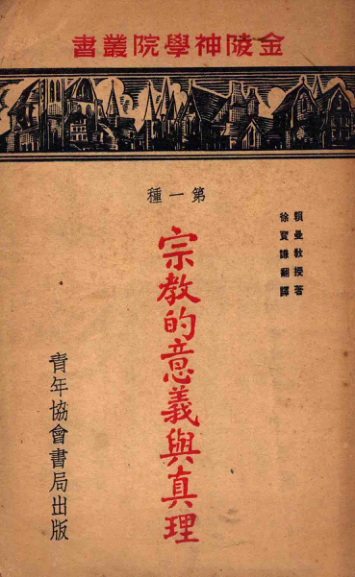 金陵神學院叢書
第一種
賴曼教授著
徐寶謙翻譯
宗教的意義與真理
青年協會書局出版